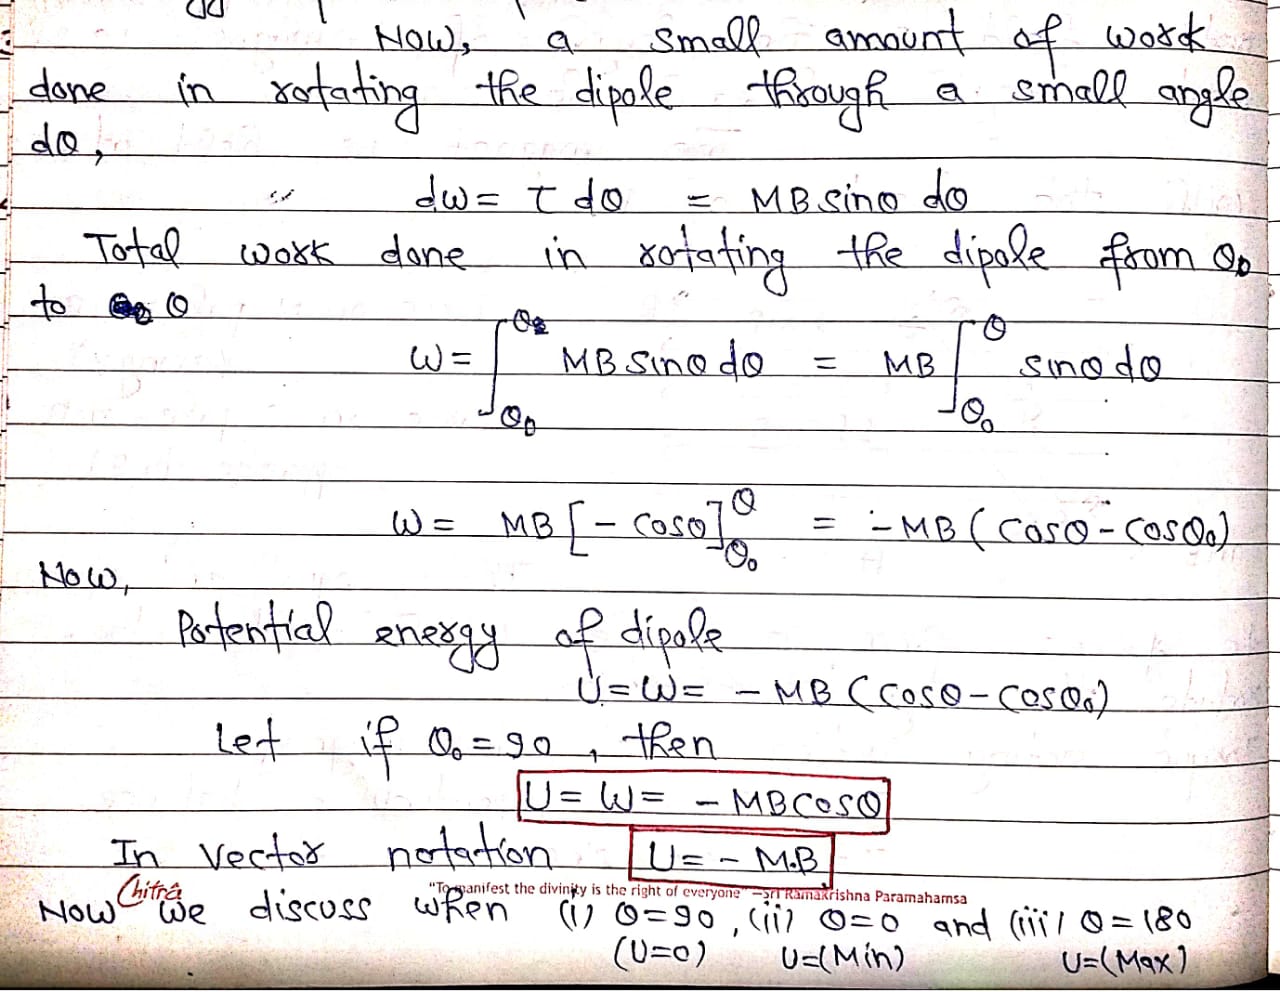 Now, a small amount of work
done in rotating the dipole through a small angle
dθ,
∴ dw = τ dθ = MB sinθ dθ
Total work done in rotating the dipole from θ₀
to θ
W = ∫ MB sinθ dθ = MB ∫_θ₀^θ sinθ dθ
W = MB [- cosθ]_θ₀^θ = - MB (cosθ - cosθ₀)
Now,
Potential energy of dipole
U = W = - MB (cosθ - cosθ₀)
Let if θ₀ = 90, then
U = W = - MB cosθ
In vector notation U = - M.B
"To manifest the divinity is the right of everyone" —Sri Ramakrishna Paramahamsa
Chitra
Now we discuss when (i) θ = 90, (ii) θ = 0 and (iii) θ = 180
(U=0) U=(Min) U=(Max)